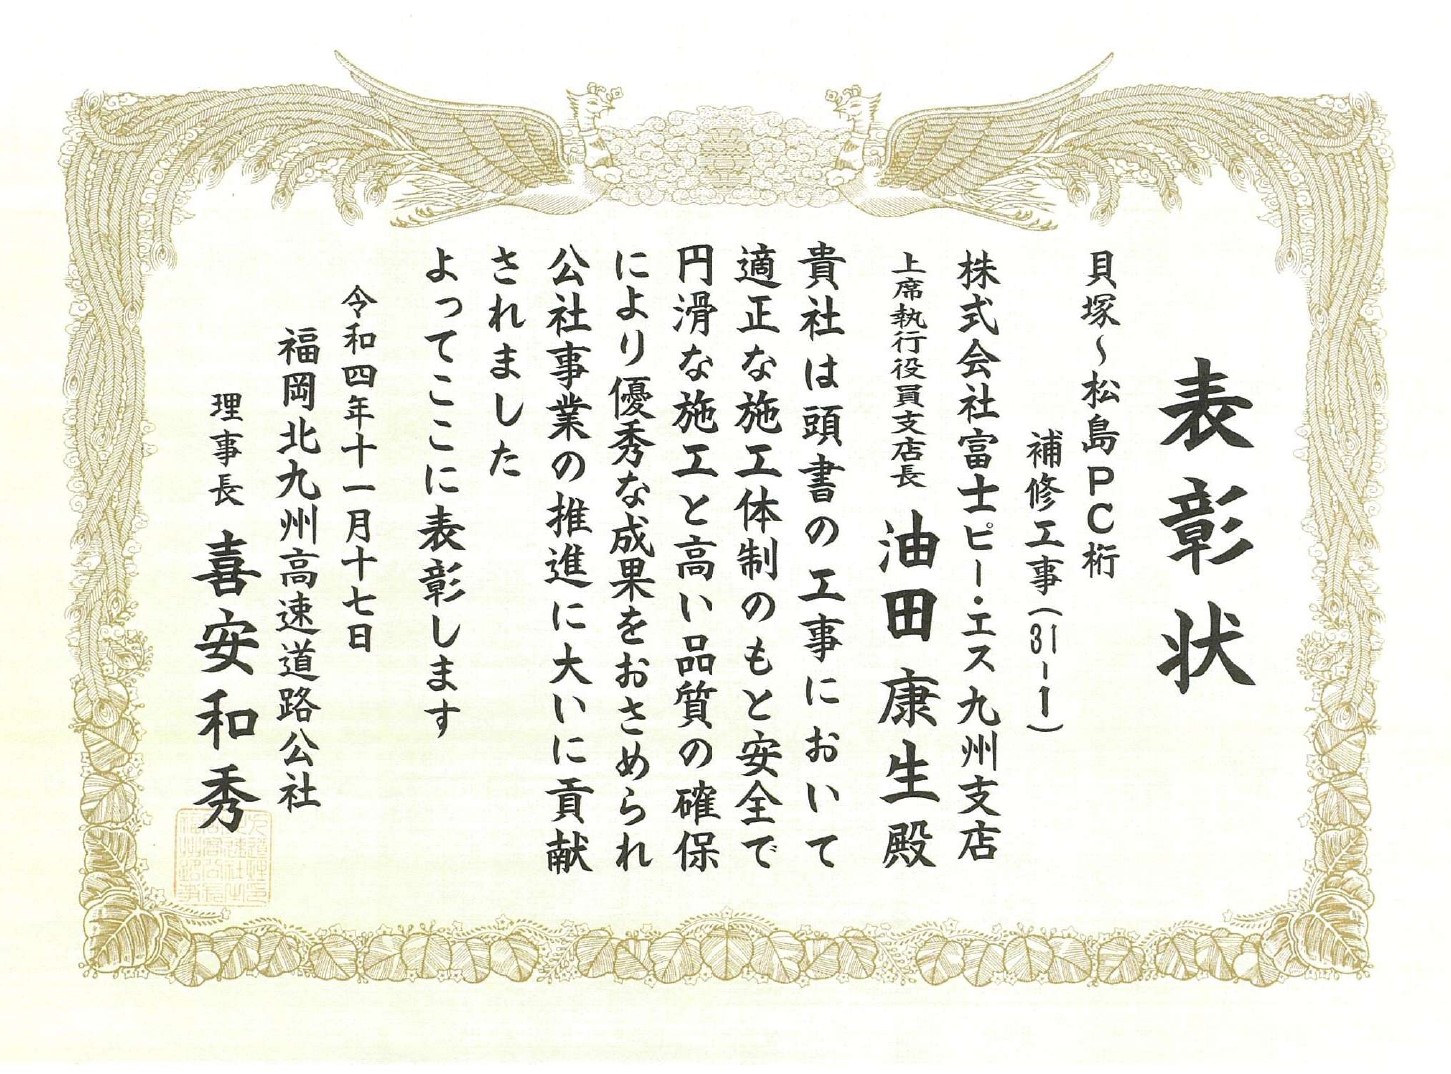 表彰状
貝塚～松島ＰＣ桁
補修工事(31-1)
株式会社富士ピー・エス九州支店
上席執行役員支店長 油田康生殿
貴社は頭書の工事において
適正な施工体制のもと安全で
円滑な施工と高い品質の確保
により優秀な成果をおさめられ
公社事業の推進に大いに貢献
されました
よってここに表彰します
令和四年十一月十七日
福岡北九州高速道路公社
理事長 喜安和秀